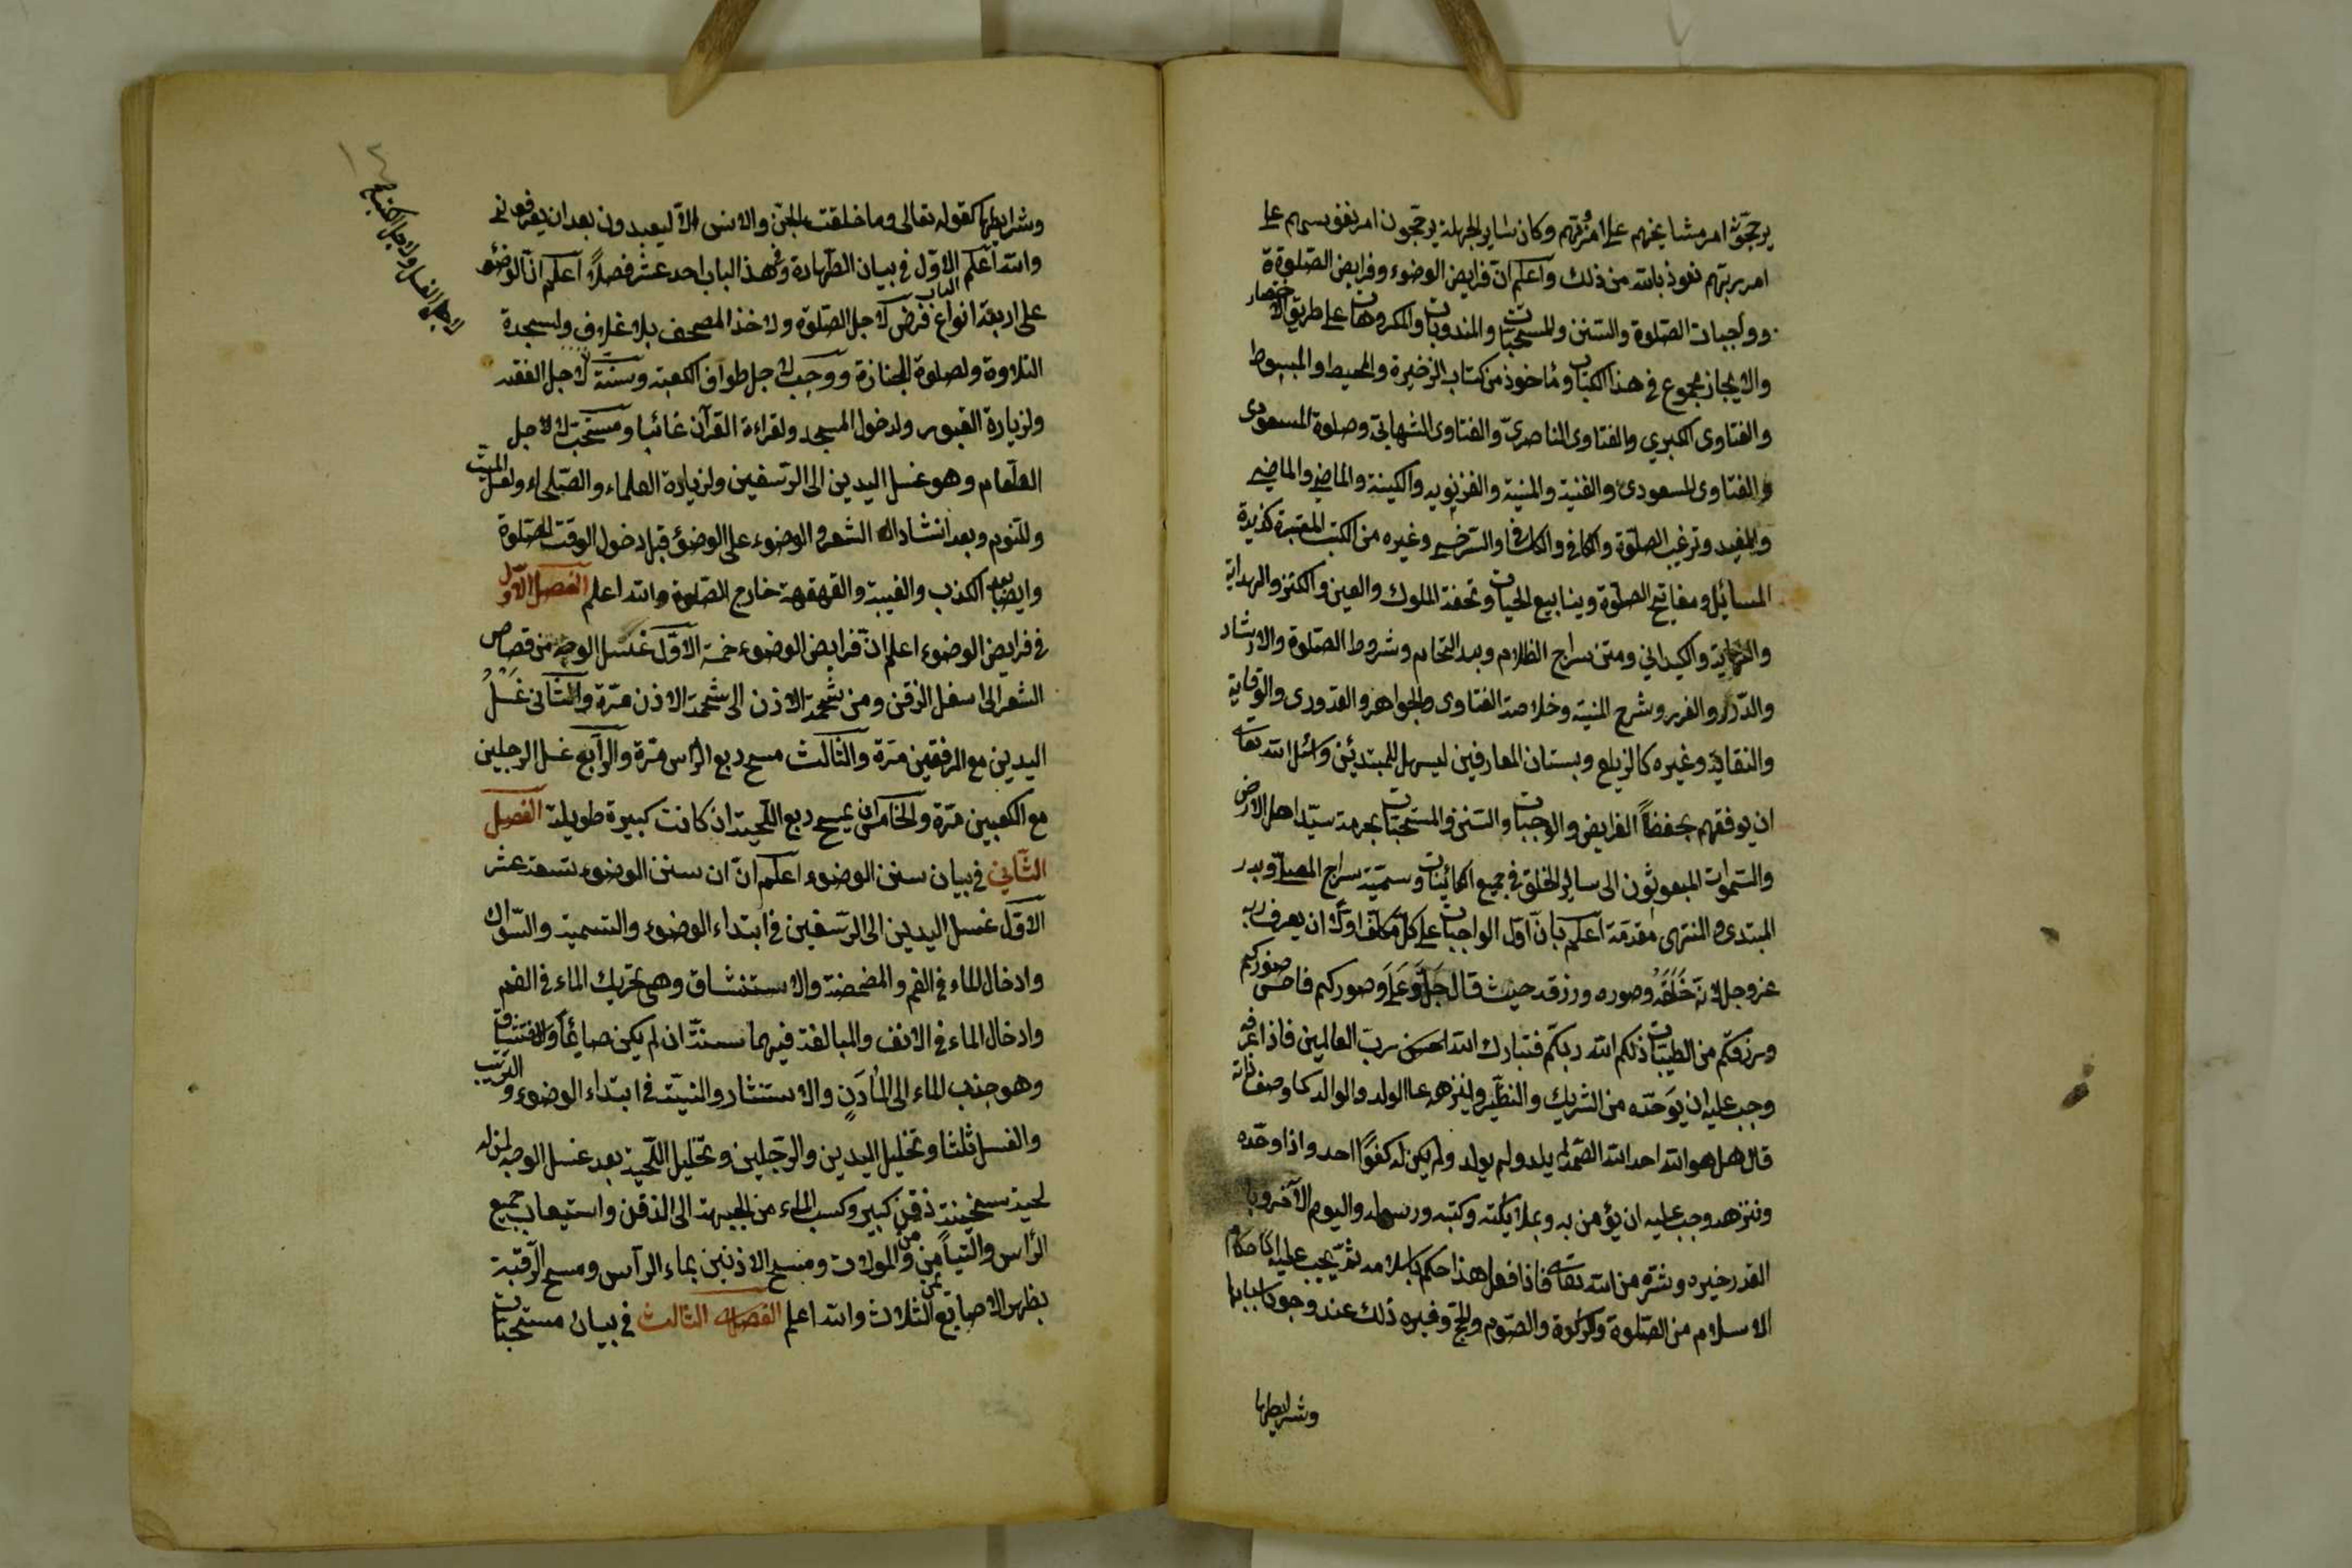 يرجحون امر مشايخهم على امرتهم وكان ساير الجهلة يرجحون امر نفوسهم على
امر ربهم نعوذ بالله من ذلك واعلم ان فرايض الوضوء وفرايض الصلوة
وواجبات الصلوة والسنن والمستحبات والمندوبات والمكروهات على طريق الاختصار
والايجاز مجموع في هذا الكتاب وماخوذ من كتاب الزخيرة والمحيط والمبسوط
والفتاوى الكبري والفتاوى الناصري والفتاوى الشهابي وصلوة المسعودى
والفتاوى المسعودى والقنية والمنية والغزنويه والكينة والماضي والماضي
والمفيد وترغيب الصلوة والكافي والكافي والترخيب وغيره من الكتب المعتبرة كزبدة
المسائيل ومفاتيح الصلوة وينابيع الحيات وتحفة الملوك والعين والكنز والهداية
والنهاية والكيداني ومتن سراج الظلام وبدر التمام وشروط الصلوة والارشاد
والدرر والغرر وشرح المنية وخلاصة الفتاوى والجواهر والقدورى والوقاية
والنقاية وغيره كالزيلع وبستان العارفين ليسهل للمبتدئن واسئل الله تعالى
ان يوفقهم بحفظ الفرايض والوجبات والسنن والمستحبات بحرمة سيد اهل الارض
والسموات المبعوثون الى ساير الخلق في جميع الكائينات وسميته سراج المصلى وبدر
المبتدى والمنتهى مقدمة اعلم بان اول الواجبات على كل مكلف اولا ان يعرف ربه
عز وجل لانه خلقه وصوره ورزقه حيث قال جل وعلى وصوركم فاحسن صوركم
ورزقكم من الطيبات ذلكم الله ربكم فتبارك الله احسن رب العالمين فاذا عرفه
وجب عليه ان يوحده من الشريك والنظير ولينزهه عن الولد والوالد كما وصف ذاته
قال هل هو الله احد الله الصمد لم يلد ولم يولد ولم يكن له كفوا احد واذا وحده
وننزهه وجب عليه ان يؤمن به وبملايكته وكتبه ورسله واليوم الآخر وبا
القدر خيره وشره من الله تعالى فاذا فعل هذا حكم باسلامه ثم يجب عليه احكام
الاسلام من الصلوة والزكوة والصوم والحج وغيره ذلك عند وجود اسبابها
وشرايطها
وشرايطها كقوله تعالى وما خلقت الجن والانس الا ليعبدون بعد ان يعرفونى
والله اعلم الباب الاول في بيان الطهارة وفي هذا الباب احد عشر فصلا اعلم ان الوضؤ
على اربعة انواع فرض لاجل الصلوة ولاخذ المصحف بلا غلاف ولسجدة
التلاوة ولصلوة الجنازة ووجب لاجل طواف الكعبة وسنة لاجل الفقه
ولزيارة القبور ولدخول المسجد ولقراءة القرآن غائبا ومستحب لاجل
الطعام وهو غسل اليدين الى الرسغين ولزيارة العلماء والصلحاء ولغسل الميت
وللنوم وبعد انشاد الشعر والوضوء على الوضؤ قبل دخول الوقت الصلوة
وايضا بعد الكذب والغيبة والقهقهة خارج الصلوة والله اعلم الفصل الاول
في فرايض الوضوء اعلم ان فرايض الوضوء خمسة الاول غسل الوجه من قصاص
الشعر الى اسفل الزقن ومن شحمة الاذن الى شحمة الاذن مرة والثانى غسل
اليدين مع المرفقين مرة والثالث مسح ربع الراس مرة والرابع غسل الرجلين
مع الكعبين مرة والخامس ان يمسح ربع اللحية ان كانت كبيرة طويلة الفصل
الثاني في بيان سنن الوضوء اعلم ان ان سنن الوضوء تسعة عشر
الاول غسل اليدين الى الرسغين في ابتداء الوضوء والتسمية والسواك
وادخال الماء في الفم والمضمضة والاستنشاق وهي تحريك الماء في الفم
وادخال الماء في الانف والمبالغة فيهما سنة ان لم يكن صايما والاستنشاق
وهو جذب الماء الى المادن والاستنثار والنية في ابتداء الوضوء والترتيب
والغسل ثلثا وتخليل اليدين والرجلين وتخليل اللحية بعد غسل الوجه لمن له
لحية سخينة ذقن كبير وكسب الماء من الجبهة الى الذقن واستيعاب جميع
الرأس والتيامن والموالات ومسح الاذنين بماء الرأس ومسح الرقبة
بظهر الاصابع الثلاث والله اعلم الفصل الثالث في بيان مستحبات